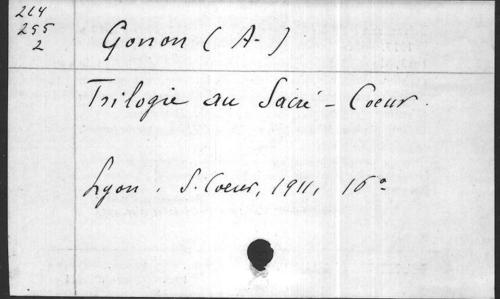 264
255
2
Gonon (A-)
Trilogie au Sacré-Coeur.
Lyon. S. Coeur, 1911, 16°